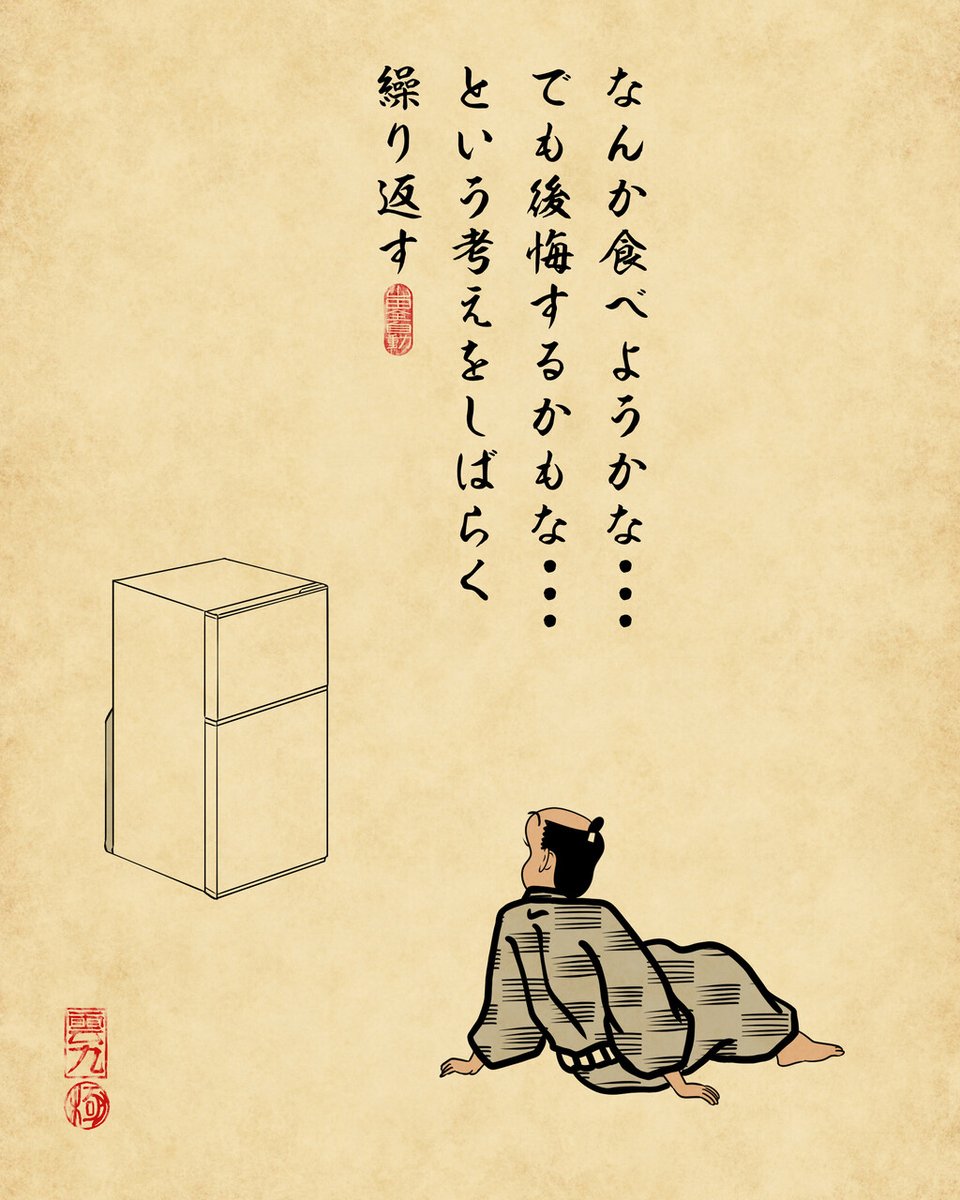 なんか食べようかな・・・
でも後悔するかもな・・・
という考えをしばらく
繰り返す
雲九
極